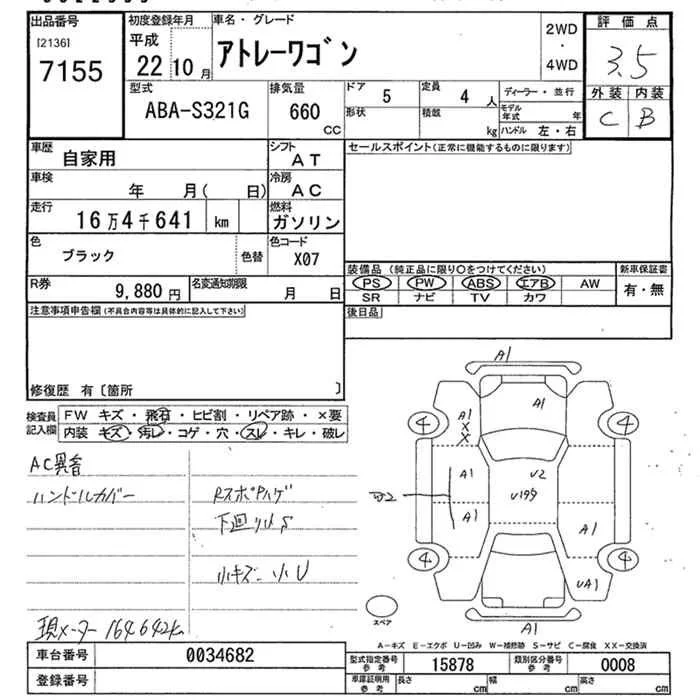 出品番号 初度登録年月 車名・グレード 2WD・4WD 評価点
[2136] 7155 平成 22 10月 アトレーワゴン 3.5
型式 排気量 ドア 定員 ディーラー・並行 外装 内装
ABA-S321G 660 CC 5 4 人 モデル年式 年 C B
形状 積載 kg ハンドル 左・右
車歴 自家用 シフト AT セールスポイント(正常に機能するものに限ります)
車検 年 月( 日) 冷房 AC
走行 16万4千641 km 燃料 ガソリン
色 ブラック 色替 色コード X07
装備品 (純正品に限り○をつけてください) 新車保証書
PS PW ABS エアB AW 有・無
SR ナビ TV カワ
R券 9,880円 名変通知期限 月 日
後日品
注意事項申告欄(不具合内容等は具体的に記入して下さい)
修復歴 有〔箇所 〕
検査員記入欄 FW キズ・飛石・ヒビ割・リペア跡・×要
内装 キズ・汚レ・コゲ・穴・スレ・キレ・破レ
AC異音
ハンドルカバー RスポPハゲ
下回りSS
小キズ 小U
現メーター 164642km
A1
A1
4 A1 X X 4
A1 U2
U199
A1 A1
4 UA1 4
A1
スペア
A-キズ E-エクボ U-凹み W-補修跡 S-サビ C-腐食 XX-交換済
車台番号 0034682 型式指定番号 参考 15878 類別区分番号 参考 0008
登録番号 車庫証明用 参考 長さ cm 幅 cm 高さ cm